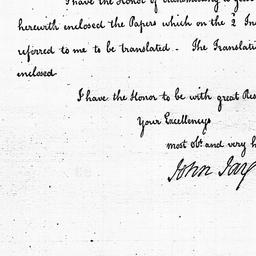 I have the Honor of
herewith enclosed the Papers which on the 2 In
referred to me to be translated - The Translati
enclosed
I have the Honor to be with great Res
Your Excellency's
most Obt and very h
John Jay